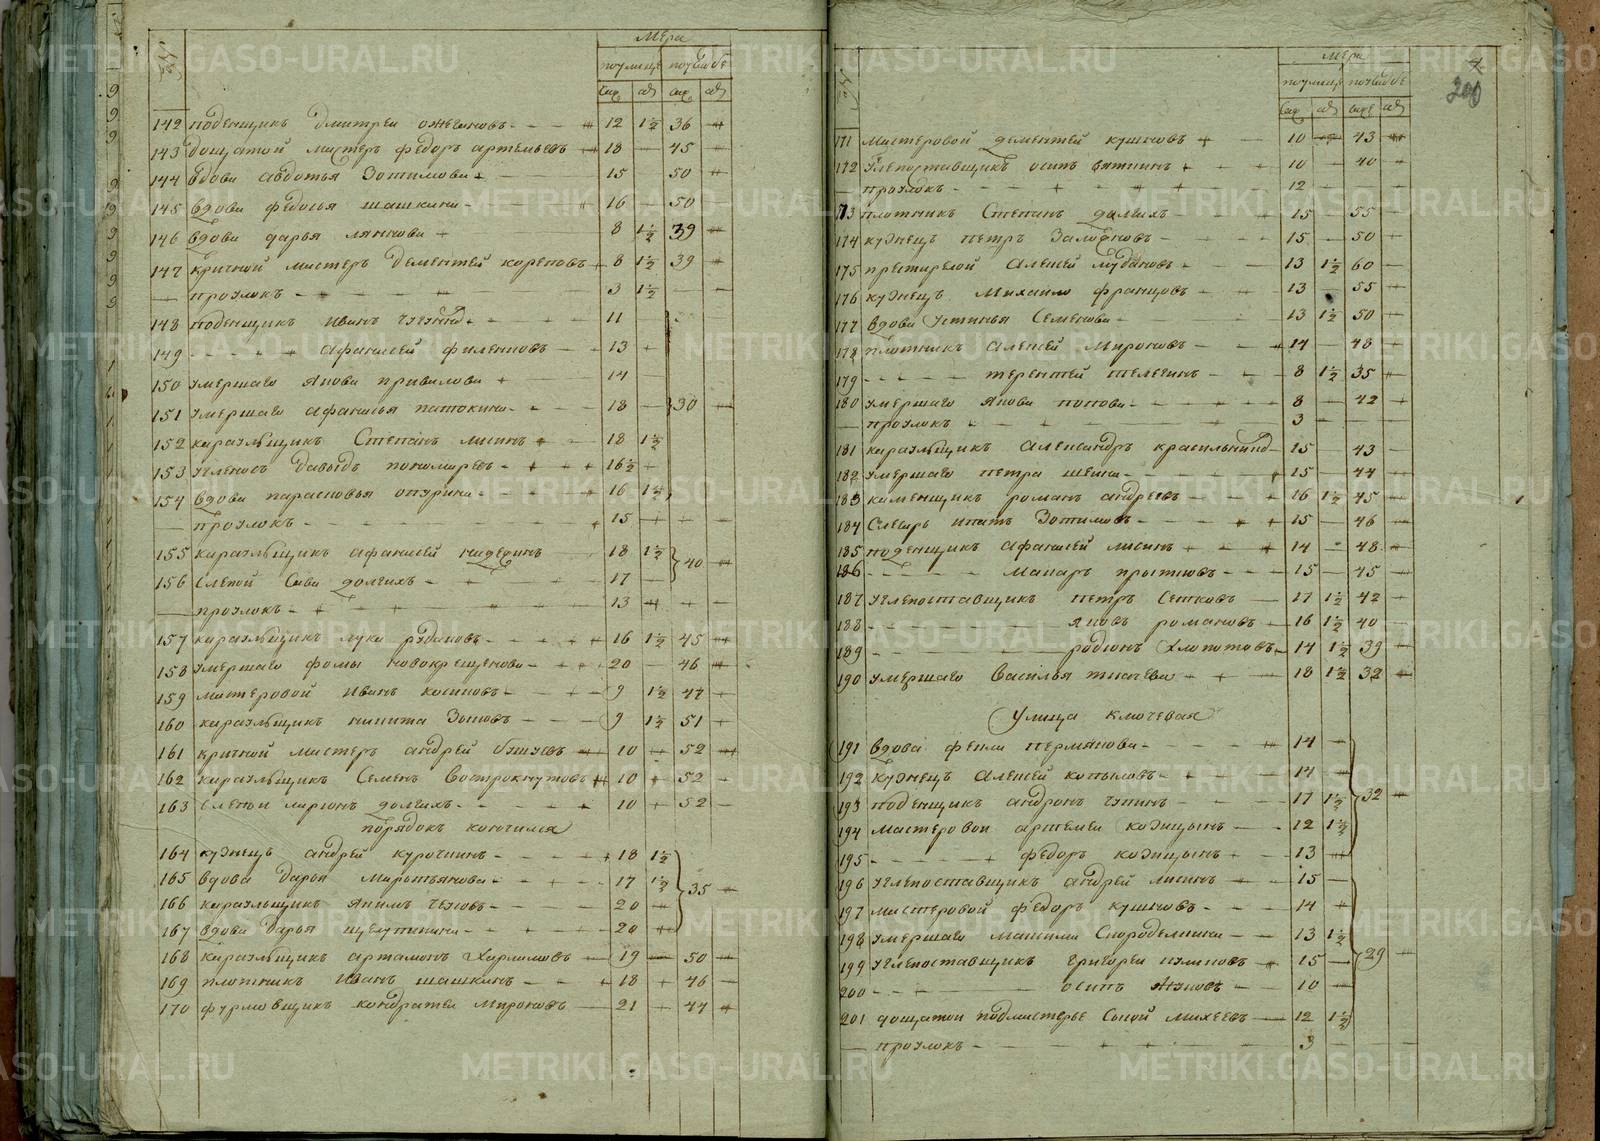 Мера
по улице по усадьбе
саж ар саж ар
142 поденщикъ Дмитреи Ожеговъ 12 1½ 36
143 дощатой мастеръ федоръ артемьевъ 18 45
144 вдова авдотья Зотимова 15 50
145 вдова федосья шашкина 16 50
146 вдова дарья 8 1½ 39
147 кричной мастеръ Дементей кореповъ 8 1½ 39
проулокъ 3 1½
148 поденщикъ Иванъ 11
149 афанасей филенковъ 13
150 умершаго якова привалова 14
151 умершаго афанасья патокина 18 30
152 караульщикъ Степанъ лисинъ 18 1½
153 угленосъ давыдъ пономаревъ 16½
154 вдова парасковья опурина 16 1½
проулокъ 15
155 караульщикъ афанасей 18 1½ 40
156 слепой Сава долгихъ 17
проулокъ 13
157 караульщикъ лука рудаковъ 16 1½ 45
158 умершаго фомы новокрещенова 20 46
159 мастеровой Иванъ косиковъ 9 1½ 47
160 караульщикъ никита Зотовъ 9 1½ 51
161 кричной мастеръ андрей бушуевъ 10 52
162 караульщикъ Семенъ Вострокнутовъ 10 52
163 слепои ларионъ долгихъ 10 52
порядокъ кончился
164 кузнецъ андрей курочкинъ 18 1½
165 вдова дарья мартьянова 17 1½ 35
166 караульщикъ якимъ 20
167 вдова дарья щелупинина 20
168 караульщикъ артамонъ Харламовъ 19 50
169 плотникъ Иванъ шашкинъ 18 46
170 фурмовщикъ кондратеи Мироновъ 21 44
200
Мера
по улице по усадьбе
саж ар саж ар
171 мастеровой дементей кушковъ 10 43
172 углепоставщикъ осипъ вяткинъ 10 40
проулокъ 12
173 плотникъ Степанъ долгихъ 15 55
174 кузнецъ петръ 15 50
175 престарелой алексей рудаковъ 13 1½ 60
176 кузнецъ Михаило францовъ 13 55
177 вдова устинья Семенова 13 1½ 50
178 плотникъ алексей Мироновъ 14 48
179 терентей телегинъ 8 1½ 35
180 умершаго якова попова 8 42
проулокъ 3
181 караульщикъ александръ красильниковъ 15 43
182 умершаго петра шеина 15 44
183 каменщикъ романъ андреевъ 16 1½ 45
184 слесарь ипатъ Зотимовъ 15 46
185 поденщикъ афанасей лисинъ 14 48
186 макаръ прытковъ 15 45
187 углепоставщикъ петръ Сетковъ 17 1½ 42
188 яковъ романовъ 16 1½ 40
189 родионъ Хлопотовъ 14 1½ 39
190 умершаго василья ткачева 18 1½ 32
Улица ключевая
191 вдова фекла пермякова 14
192 кузнецъ алексей копыловъ 14
193 поденщикъ андронъ чупинъ 17 1½ 32
194 мастеровои артемеи козицынъ 12 1½
195 федоръ козицынъ 13
196 углепоставщикъ андрей лисинъ 15
197 мастеровой федоръ кушковъ 14
198 умершаго максима Скороделкина 13 1½
199 углепоставщикъ григореи куликовъ 15 29
200 осипъ 10
201 дощатои подмастерье Сысой михеевъ 12 1½
проулокъ 3